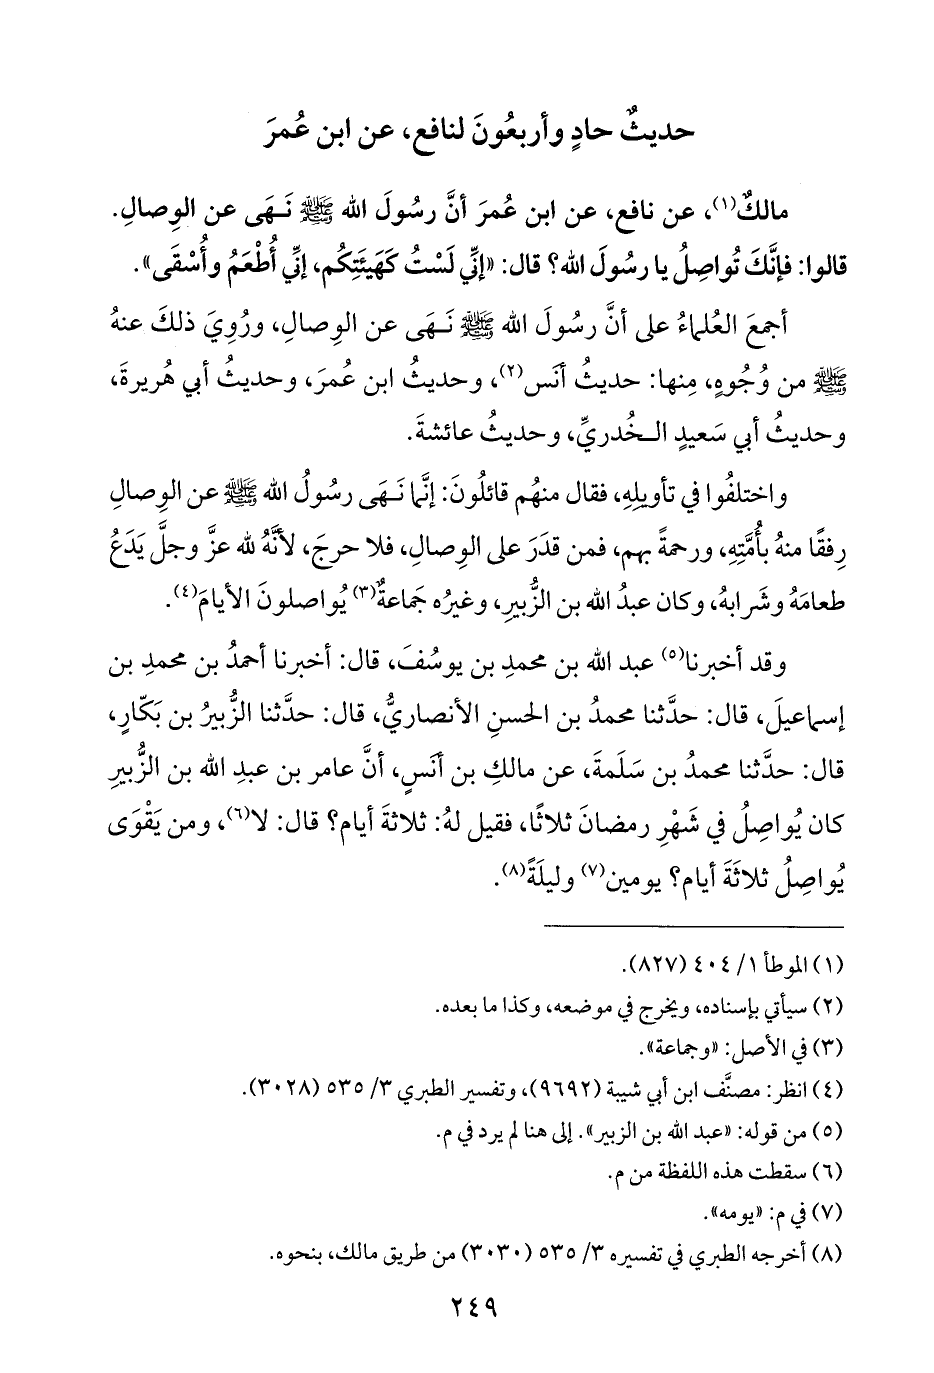 حديثٌ حادٍ وأربعُونَ لنافع، عن ابن عُمرَ
مالكٌ(١)، عن نافع، عن ابن عُمرَ أنَّ رسُولَ الله ﷺ نَـهَى عن الوِصالِ.
قالوا: فإنَّكَ تُواصِلُ يا رسُولَ الله؟ قال: «إنِّي لَسْتُ كَهَيئَتِكُم، إنِّي أُطْعَمُ وأُسْقَى».
أجمعَ العُلماءُ على أنَّ رسُولَ الله ﷺ نَـهَى عن الوِصالِ، ورُوِيَ ذلكَ عنهُ
ﷺ من وُجُوهٍ، مِنها: حديثُ أنَس(٢)، وحديثُ ابن عُمرَ، وحديثُ أبي هُريرةَ،
وحديثُ أبي سَعيدٍ الـخُدريِّ، وحديثُ عائشةَ.
واختلفُوا في تأويلِهِ، فقال منهُم قائلُونَ: إنَّما نَـهَى رسُولُ الله ﷺ عن الوِصالِ
رِفقًا منهُ بأُمَّتِهِ، ورحمةً بهم، فمن قدَرَ على الوِصالِ، فلا حرجَ، لأنَّهُ لله عزَّ وجلَّ يَدَعُ
طعامَهُ وشَرابهُ، وكان عبدُ الله بن الزُّبيرِ، وغيرُه جَماعةٌ(٣) يُواصلونَ الأيامَ(٤).
وقد أخبرنا(٥) عبد الله بن محمدِ بن يوسُفَ، قال: أخبرنا أحمدُ بن محمدِ بن
إسماعيلَ، قال: حدَّثنا محمدُ بن الحسنِ الأنصاريُّ، قال: حدَّثنا الزُّبيرُ بن بَكّارٍ،
قال: حدَّثنا محمدُ بن سَلَمةَ، عن مالكِ بن أنَسٍ، أنَّ عامر بن عبدِ الله بن الزُّبيرِ
كان يُواصِلُ في شَهْرِ رمضانَ ثلاثًا، فقيل لهُ: ثلاثةَ أيام؟ قال: لا(٦)، ومن يَقْوَى
يُواصِلُ ثلاثَةَ أيام؟ يومين(٧) وليلَةً(٨).
(١) الموطأ ١/ ٤٠٤ (٨٢٧).
(٢) سيأتي بإسناده، ويخرج في موضعه، وكذا ما بعده.
(٣) في الأصل: «وجماعة».
(٤) انظر: مصنَّف ابن أبي شيبة (٩٦٩٢)، وتفسير الطبري ٣/ ٥٣٥ (٣٠٢٨).
(٥) من قوله: «عبد الله بن الزبير». إلى هنا لم يرد في م.
(٦) سقطت هذه اللفظة من م.
(٧) في م: «يومه».
(٨) أخرجه الطبري في تفسيره ٣/ ٥٣٥ (٣٠٣٠) من طريق مالك، بنحوه.
٢٤٩